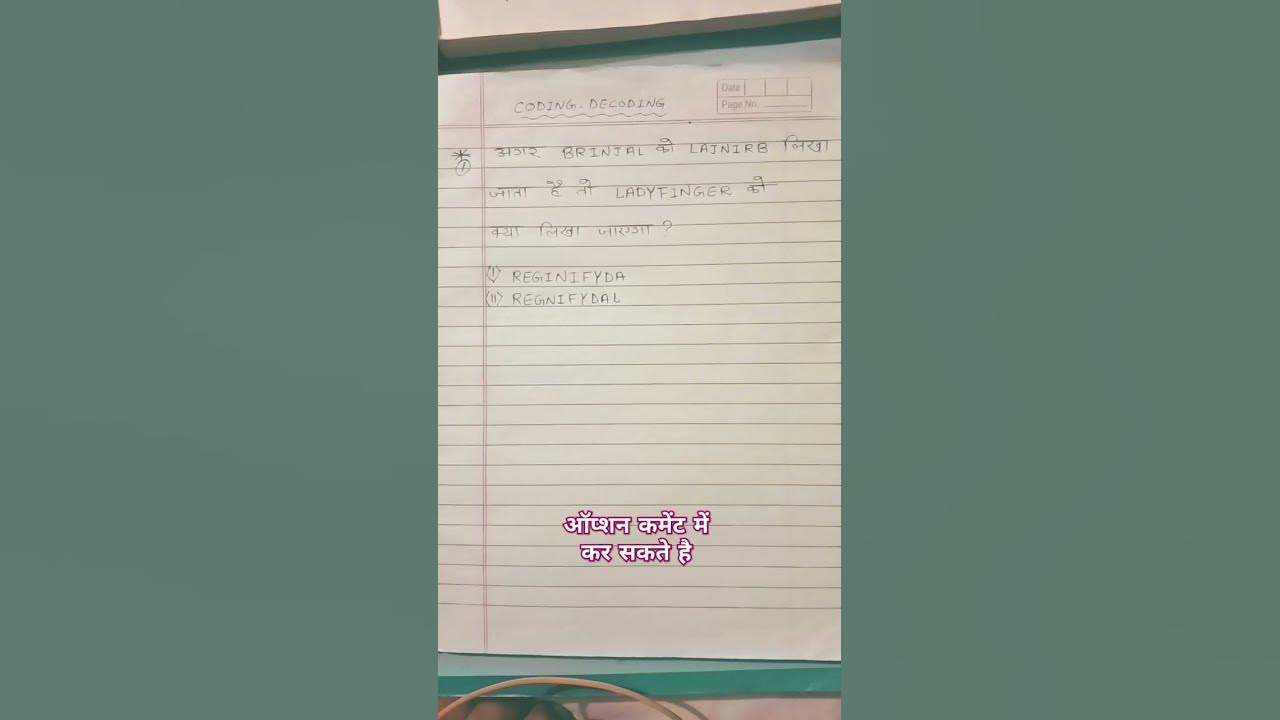 Date
Page No.
CODING-DECODING
* ① अगर BRINJAL को LAJNIRB लिखा
जाता है तो LADYFINGER को
क्या लिखा जाएगा ?
(I) REGINIFYDA
(II) REGNIFYDAL
ऑप्शन कमेंट में
कर सकते है